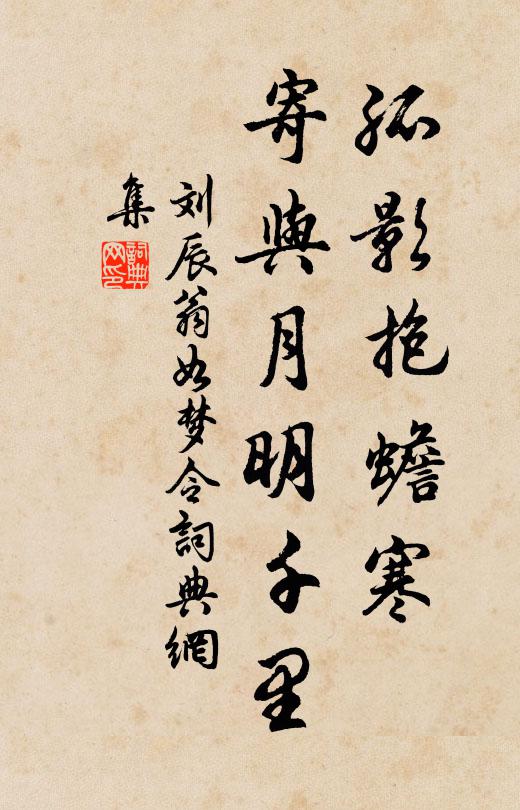 孤影抱蟾寒
寄與月明千里
刘辰翁如梦令詞典網
集
詞典
网印